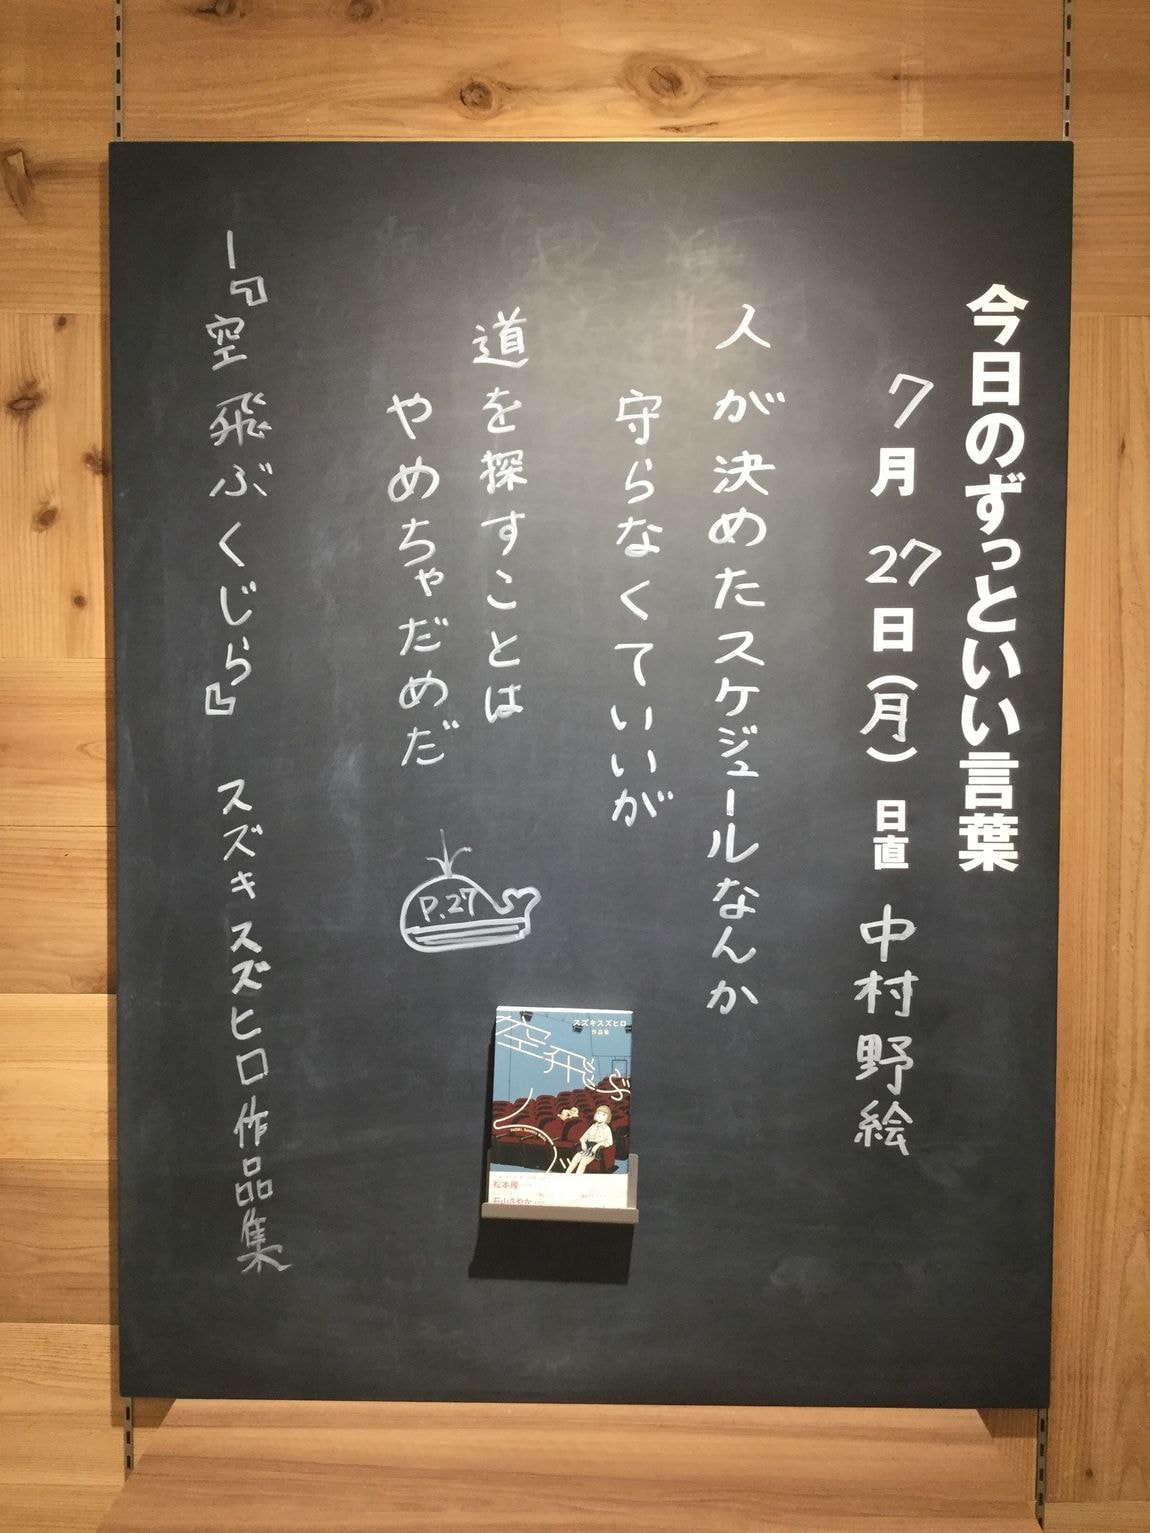 今日のずっといい言葉
7月27日(月) 日直 中村野絵
人が決めたスケジュールなんか
守らなくていいが
道を探すことは
やめちゃだめだ
P.27
―『空飛ぶくじら』 スズキスズヒロ作品集
スズキスズヒロ
作品集
空飛ぶくじら
松本隆
石山さやか